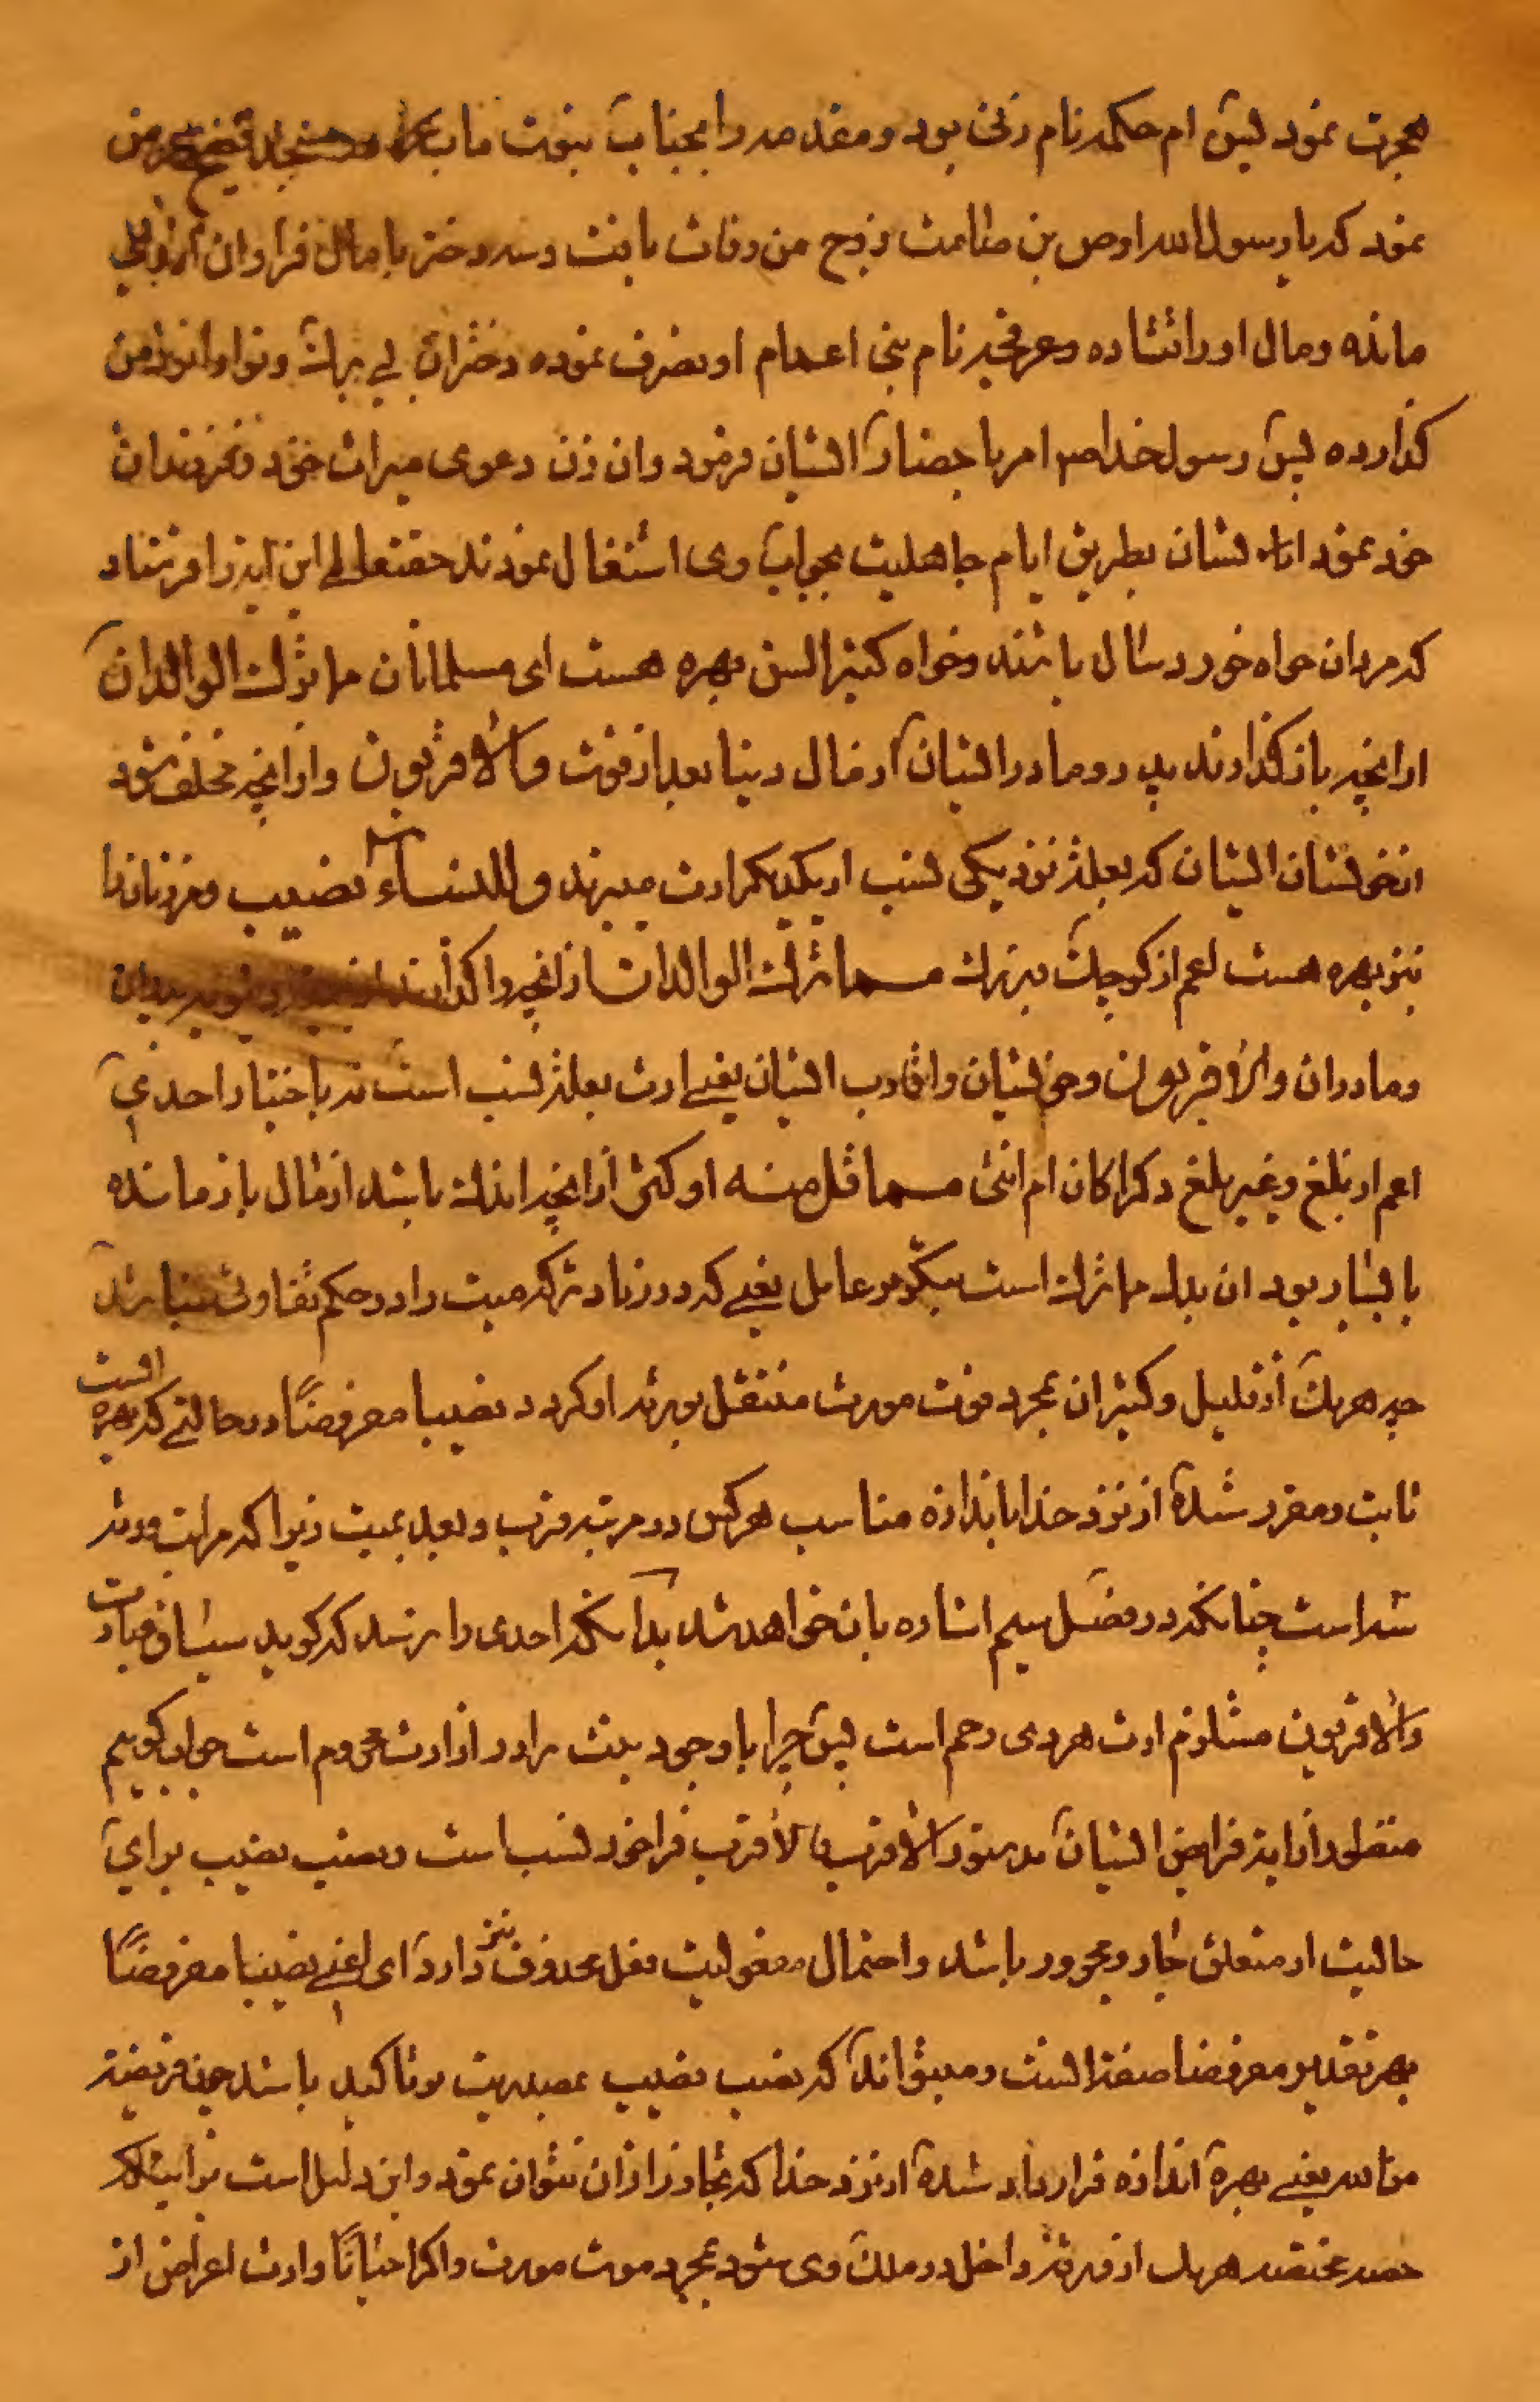 هجرت نمود پس ام حکمه نام زنی بود و مقدمه را بجناب نبوت ماب عرض
نمود که یا رسول الله اوص بن صامت زوج من وفات یافت و سه دختر با مال فراوان از وی
مانده و مال او را قتاده و عرفجه نام بنی اعمام او تصرف نموده دختران بی برک و نوا را نزد من
کذارده پس رسول خدا ص امر باحضار ایشان فرمود و ان زن دعوی میراث خود و فرزندان
خود نمود ایشان بطریق ایام جاهلیت بجواب وی اشتغال نمودند حقتعالی این ایه را فرستاد
که مردان خواه خورد سال باشند و خواه کثیر السن بهره هست ای مسلمانان مما ترک الوالدان
از انچه باز کذارند پدر و مادر ایشان از مال دنیا بعد از فوت والاقربون و از انچه مخلف شود
از خویشان ایشان که بعلة نزدیکی نسب از یکدیکر ارث میبرند وللنساء نصیب و مر زنان را
نیز بهره هست اعم از کوچک و بزرک مما ترک الوالدان از انچه وا کذارند پدران
و مادران والاقربون و خویشان و اقارب ایشان یعنی ارث بعلة نسب است نه باختیار احدی
اعم از بلغ و غیر بلغ ذکرا کان ام انثی مما قل منه او کثر از انچه اندک باشد از مال باز مانده
یا بسیار بود ان بدل مما ترک است بتکریر عامل یعنی که در زیاد ترکه میت را در حکم تفاوتی نمیباشد
چه هر یک از قلیل و کثیر ان بمجرد فوت مورث منتقل بورثه او کردد نصیبا مفروضا در حالتی که بهره ایست
ثابت و مقرر شده از نزد خدا باندازه مناسب هر کس در مرتبه قرب و بعد بمیت زیرا که مراتب ورثه
سه است چنانکه در فصل سیم اشاره بان خواهد شد بدانکه احدی را نرسد که کوید سیاق عبارت
والاقربون مستلزم ارث هر ذی رحم است پس چرا با وجود بنت برادر از ارث محروم است جواب کوییم
منظور از ایه فرایض ایشان بدستور الاقرب فالاقرب فراخور نسب است و نصب نصیب برای
حالیت از متعلق جار و مجرور باشد و احتمال مفعولیت فعل محذوف نیز دارد ای اعنی نصیبا مفروضا
بهر تقدیر مفروضا صفة انست و میتواند که نصب نصیب بمصدریت تاکید باشد چون فریضة
من الله یعنی بهرۀ اندازه قرار داد شدۀ از نزد خدا که تجاوز از ان نتوان نمود و این دلیل است بر اینکه
حصه مختصه هر یک از ورثه داخل در ملک وی شود بمجرد موت مورث و اکر احیانا وارث اعراض از